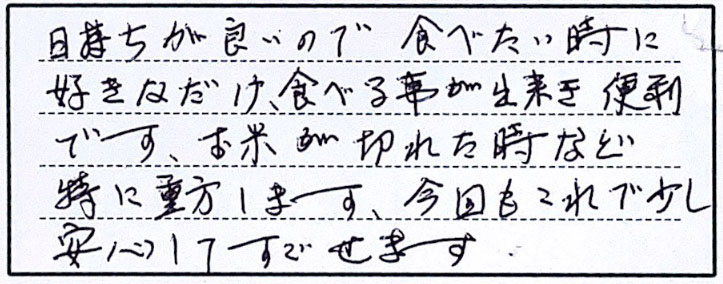 日持ちが良いので 食べたい時に
好きなだけ、食べる事が出来き 便利
です、お米が切れた時など
特に重方します、今回もこれで少し
安心してすごせます